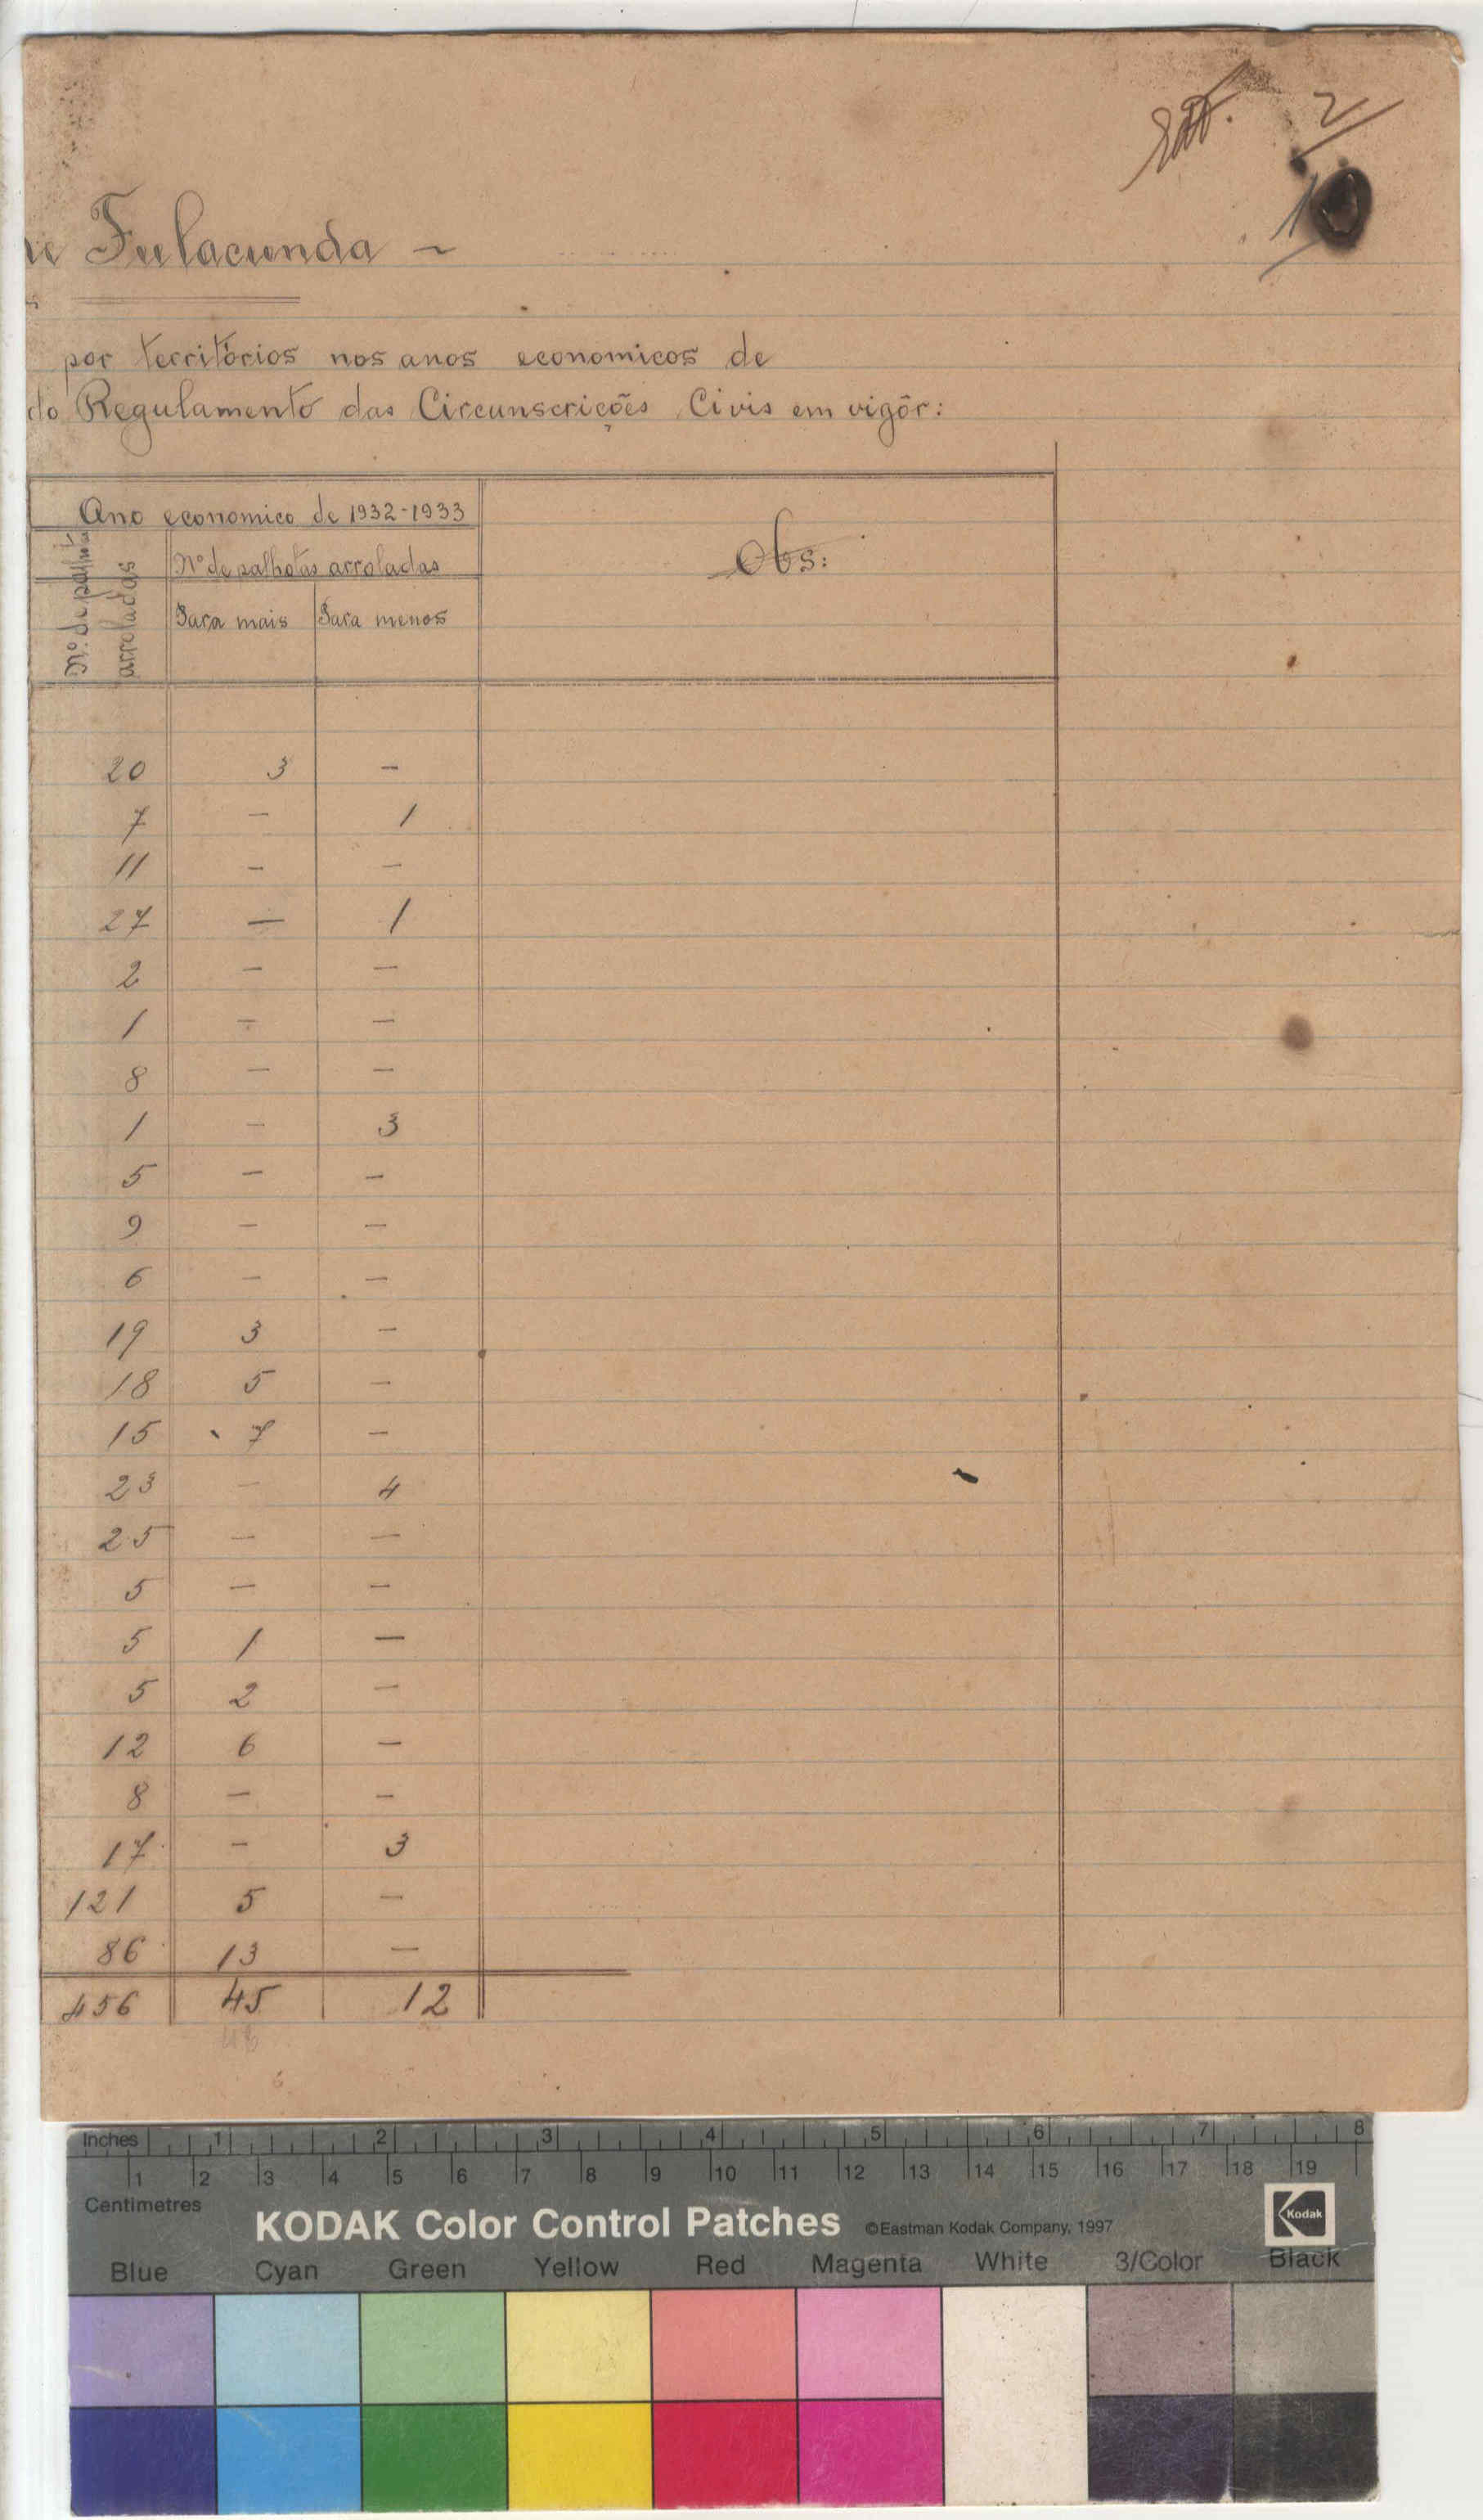 2
10
de Fulacunda ~
por territórios nos anos economicos de
do Regulamento das Circunscrições Civis em vigôr:
Ano economico de 1932-1933
Nº de palhotas arroladas
Nº de palhotas arroladas
Para mais Para menos
Obs:
20 3 -
7 - 1
11 - -
27 - 1
2 - -
1 - -
8 - -
1 - 3
5 - -
9 - -
6 - -
19 3 -
18 5 -
15 7 -
23 - 4
25 - -
5 - -
5 1 -
5 2 -
12 6 -
8 - -
17 - 3
121 5 -
86 13 -
456 45 12
Inches 1 2 3 4 5 6 7 8
1 2 3 4 5 6 7 8 9 10 11 12 13 14 15 16 17 18 19
Centimetres
KODAK Color Control Patches ©Eastman Kodak Company, 1997 Kodak
Blue Cyan Green Yellow Red Magenta White 3/Color Black